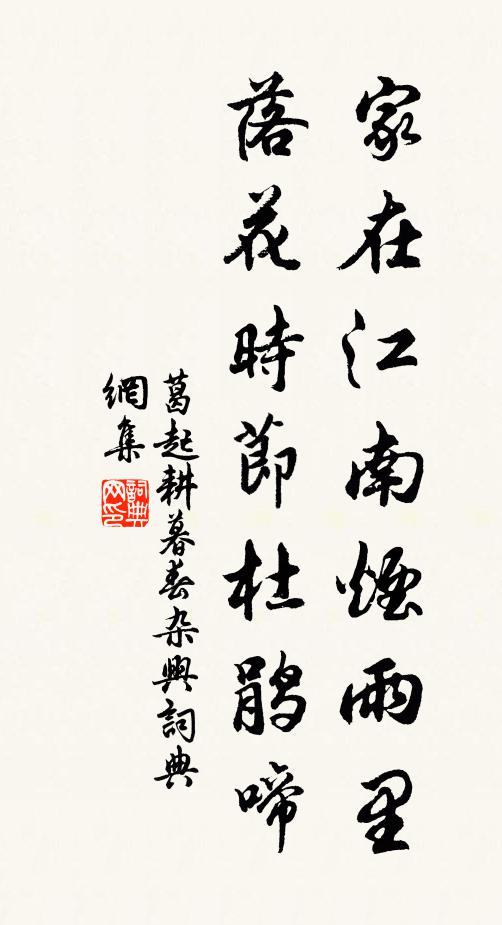 家在江南煙雨里
落花時節杜鵑啼
葛起耕暮春杂興詞典
網集
詞典
网印